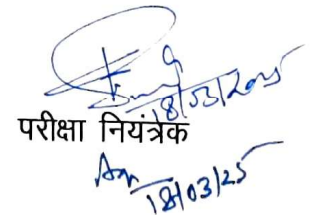 18/03/2025
परीक्षा नियंत्रक
18/03/25